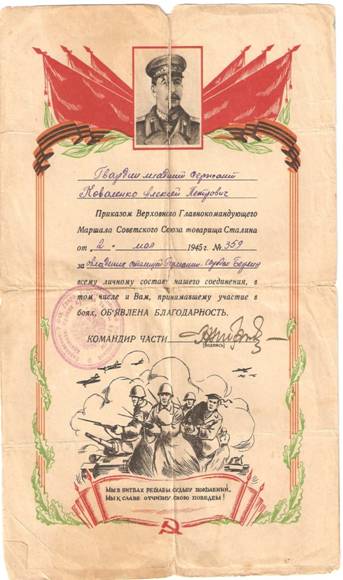 Гвардии младший сержант
Коваленко Алексей Петрович
Приказом Верховного Главнокомандующего
Маршала Советского Союза товарища Сталина
от 2 · мая 1945 г. № 359
за овладение столицей Германии городом Берлин
всему личному составу нашего соединения, в
том числе и Вам, принимавшему участие в
боях, ОБ'ЯВЛЕНА БЛАГОДАРНОСТЬ.
КОМАНДИР ЧАСТИ
(подпись)
МЫ В БИТВАХ РЕШАЕМ СУДЬБУ ПОКОЛЕНИЙ,
МЫ К СЛАВЕ ОТЧИЗНУ СВОЮ ПОВЕДЕМ!